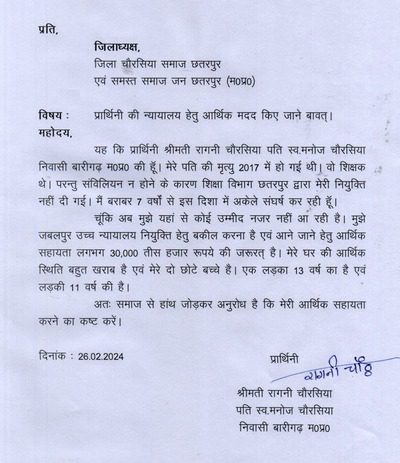 प्रति,
जिलाध्यक्ष,
जिला चौरसिया समाज छतरपुर
एवं समस्त समाज जन छतरपुर (म0प्र0)
विषय : प्रार्थिनी की न्यायालय हेतु आर्थिक मदद किए जाने बावत्।
महोदय,
यह कि प्रार्थिनी श्रीमती रागनी चौरसिया पति स्व.मनोज चौरसिया
निवासी बारीगढ़ म0प्र0 की हूँ। मेरे पति की मृत्यु 2017 में हो गई थी। वो शिक्षक
थे। परन्तु संविलियन न होने के कारण शिक्षा विभाग छतरपुर द्वारा मेरी नियुक्ति
नहीं दी गई। मैं बराबर 7 वर्षो से इस दिशा में अकेले संघर्ष कर रही हूँ।
चूंकि अब मुझे यहां से कोई उम्मीद नजर नहीं आ रही है। मुझे
जबलपुर उच्च न्यायालय नियुक्ति हेतु बकील करना है एवं आने जाने हेतु आर्थिक
सहायता लगभग 30,000 तीस हजार रूपये की जरूरत् है। मेरे घर की आर्थिक
स्थिति बहुत खराब है एवं मेरे दो छोटे बच्चे है। एक लड़का 13 वर्ष का है एवं
लड़की 11 वर्ष की है।
अतः समाज से हांथ जोड़कर अनुरोध है कि मेरी आर्थिक सहायता
करने का कष्ट करें।
दिनांक : 26.02.2024 प्रार्थिनी
रागनी चौ०
श्रीमती रागनी चौरसिया
पति स्व.मनोज चौरसिया
निवासी बारीगढ़ म0प्र0